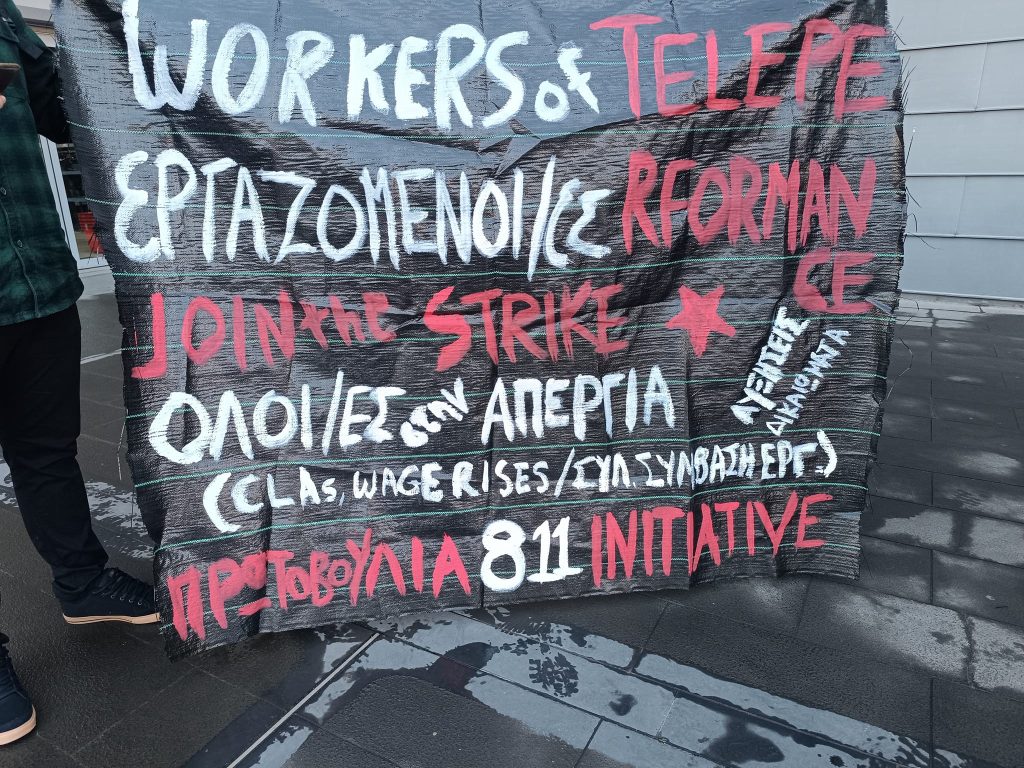 WORKERS of TELEPE
ΕΡΓΑΖΟΜΕΝΟΙ/ΕΣ RFORMAN
CE
JOIN the STRIKE
ΟΛΟΙ/ΕΣ ΣΤΗΝ ΑΠΕΡΓΙΑ
ΑΥΞΗΣΕΙΣ
ΔΙΚΑΙΩΜΑΤΑ
(CLAs, WAGE RISES/ΣΥΛ.ΣΥΜΒΑΣΗ ΕΡΓ.)
ΠΡΩΤΟΒΟΥΛΙΑ 811 INITIATIVE